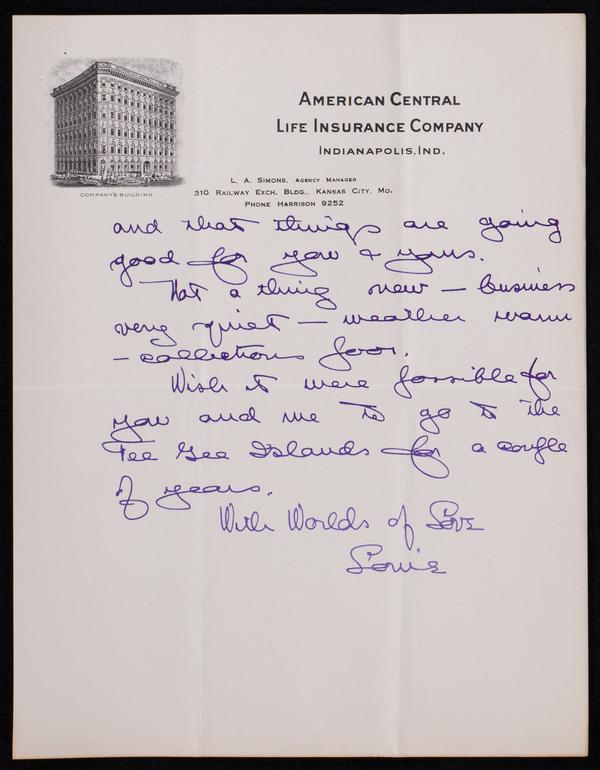 AMERICAN CENTRAL
LIFE INSURANCE COMPANY
INDIANAPOLIS, IND.
COMPANY'S BUILDING
L. A. SIMONS, AGENCY MANAGER
310 RAILWAY EXCH. BLDG., KANSAS CITY, MO.
PHONE HARRISON 9252
and that things are going
good for you & yours.
Not a thing new — business
very quiet — weather warm
— collections poor.
Wish it were possible for
you and me to go to the
Fee Gee Islands for a couple
of years.
With Worlds of Love
Louie